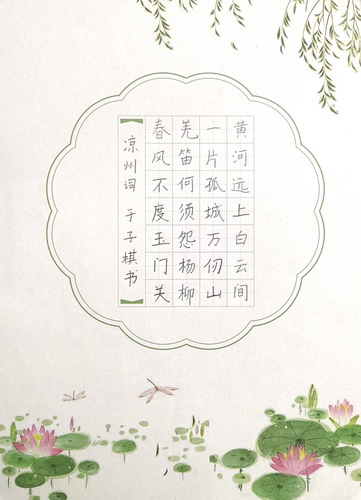 黄河远上白云间
一片孤城万仞山
羌笛何须怨杨柳
春风不度玉门关
凉州词 于子棋书